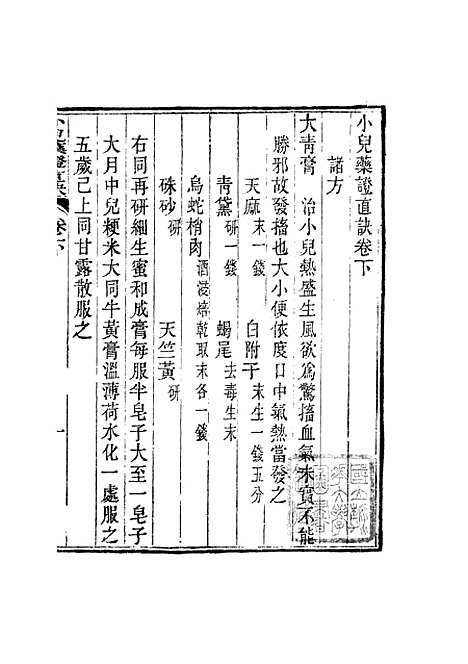 小兒藥證直訣卷下
諸方
大靑膏 治小兒熱盛生風欲爲驚搐血氣未實不能
勝邪故發搐也大小便依度口中氣熱當發之
天麻末一錢 白附子末生一錢五分
靑黛研一錢 蝎尾去毒生末
烏蛇梢肉酒浸焙乾取末各一錢
硃砂研 天竺黃研
右同再研細生蜜和成膏每服半皂子大至一皂子
大月中兒粳米大同牛黃膏溫薄荷水化一處服之
五歲已上同甘露散服之
卷下
一